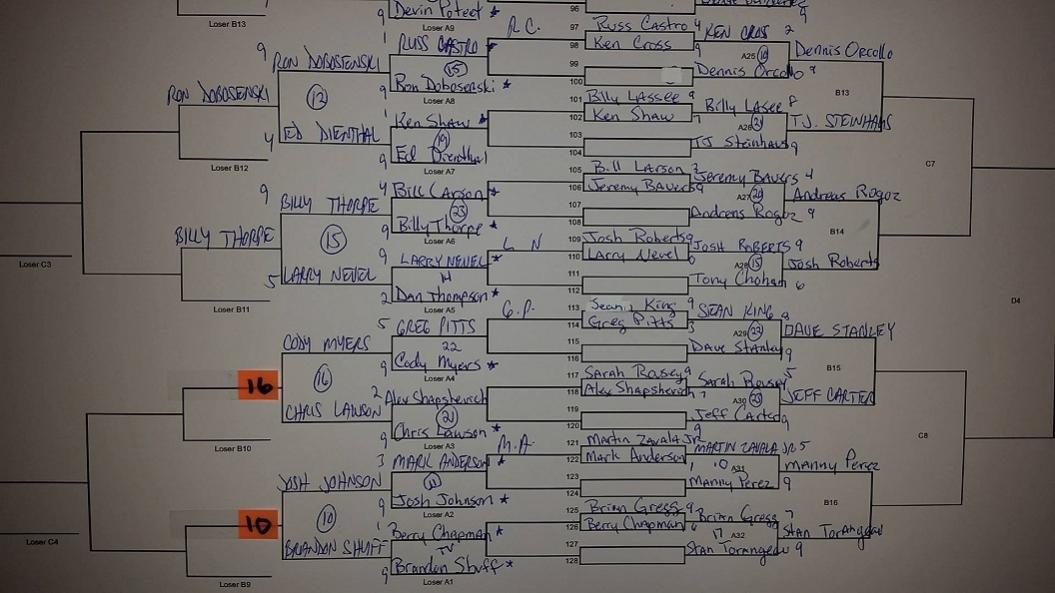 Loser B13
9 Devin Poteet *
Loser A9
R.C.
96
9
97
Russ Castro 4
98
Ken Cross 9
KEN CROSS 2
A25 10
Dennis Orcollo
99
100
Dennis Orcollo 9
B13
1 RUSS CASTRO *
15
9 Ron Dobosenski *
Loser A8
9 RON DOBOSENSKI
13
RON DOBOSENSKI
4 ED DIENTHAL
Loser B12
101
Billy Lassee 9
102
Ken Shaw 7
Billy Lasee 8
A26 21
T.J. STEINHAUS
103
104
TJ Steinhaus 9
1 Ken Shaw *
19
9 Ed Dienthal
Loser A7
C7
105
Bill Larson 3
106
Jeremy Bauers 9
Jeremy Bauers 4
A27 20
Andreas Rogoz
107
108
Andreas Rogoz 9
B14
4 Bill Carson *
23
9 Billy Thorpe *
Loser A6
9 BILLY THORPE
15
BILLY THORPE
5 LARRY NEVEL
Loser B11
Loser C3
L N
109
Josh Roberts 9
110
Larry Nevel 6
JOSH ROBERTS 9
A28 15
Josh Roberts
111
112
Tony Chohan 6
9 LARRY NEVEL *
14
2 Dan Thompson *
Loser A5
D4
G.P.
113
Sean King 9
114
Greg Pitts 3
SEAN KING 8
A29 22
DAVE STANLEY
115
116
Dave Stanley 9
B15
5 GREG PITTS
22
9 Cody Myers *
Loser A4
CODY MYERS
16
16
CHRIS LAWSON
Loser B10
117
Sarah Rousey 9
118
Alex Shapshevich 7
Sarah Rousey 5
A30 23
JEFF CARTER
119
120
Jeff Carter 9
2 Alex Shapshevich
21
9 Chris Lawson *
Loser A3
C8
M.A.
121
Martin Zavala Jr 9
122
Mark Anderson 1
MARTIN ZAVALA JR 5
10 A31
Manny Perez
123
124
Manny Perez 9
B16
3 MARK ANDERSON *
11
9 Josh Johnson *
Loser A2
JOSH JOHNSON
10
10
BRANDON SHUFF
Loser B9
Loser C4
125
Brian Gregg 9
126
Berry Chapman 6
Brian Gregg 7
17 A32
127
128
Stan Torangeau 9
1 Berry Chapman *
TV
9 Brandon Shuff *
Loser A1